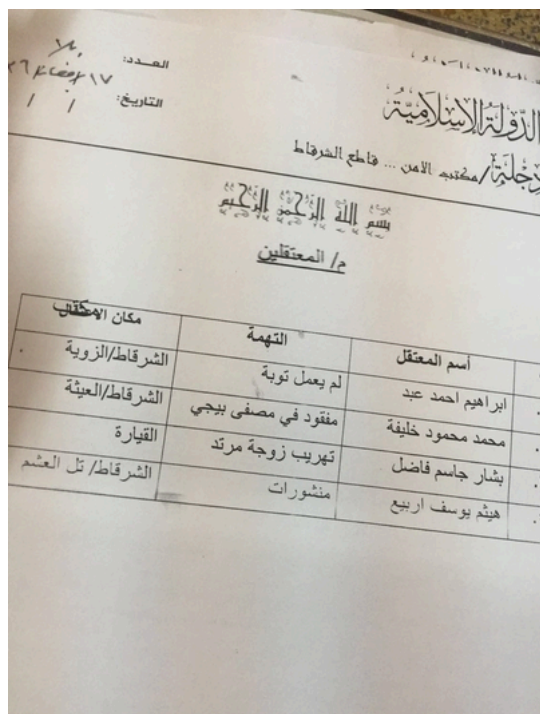 الدولة الإسلامية
دجلة/مكتب الامن ... قاطع الشرقاط
العدد:
١٧
التاريخ: / /
بسم الله الرحمن الرحيم
م/ المعتقلين
أسم المعتقل التهمة مكان الاعتقال
ابراهيم احمد عبد لم يعمل توبة الشرقاط/الزوية
محمد محمود خليفة مفقود في مصفى بيجي الشرقاط/العيثة
بشار جاسم فاضل تهريب زوجة مرتد القيارة
هيثم يوسف اربيع منشورات الشرقاط/ تل العشم